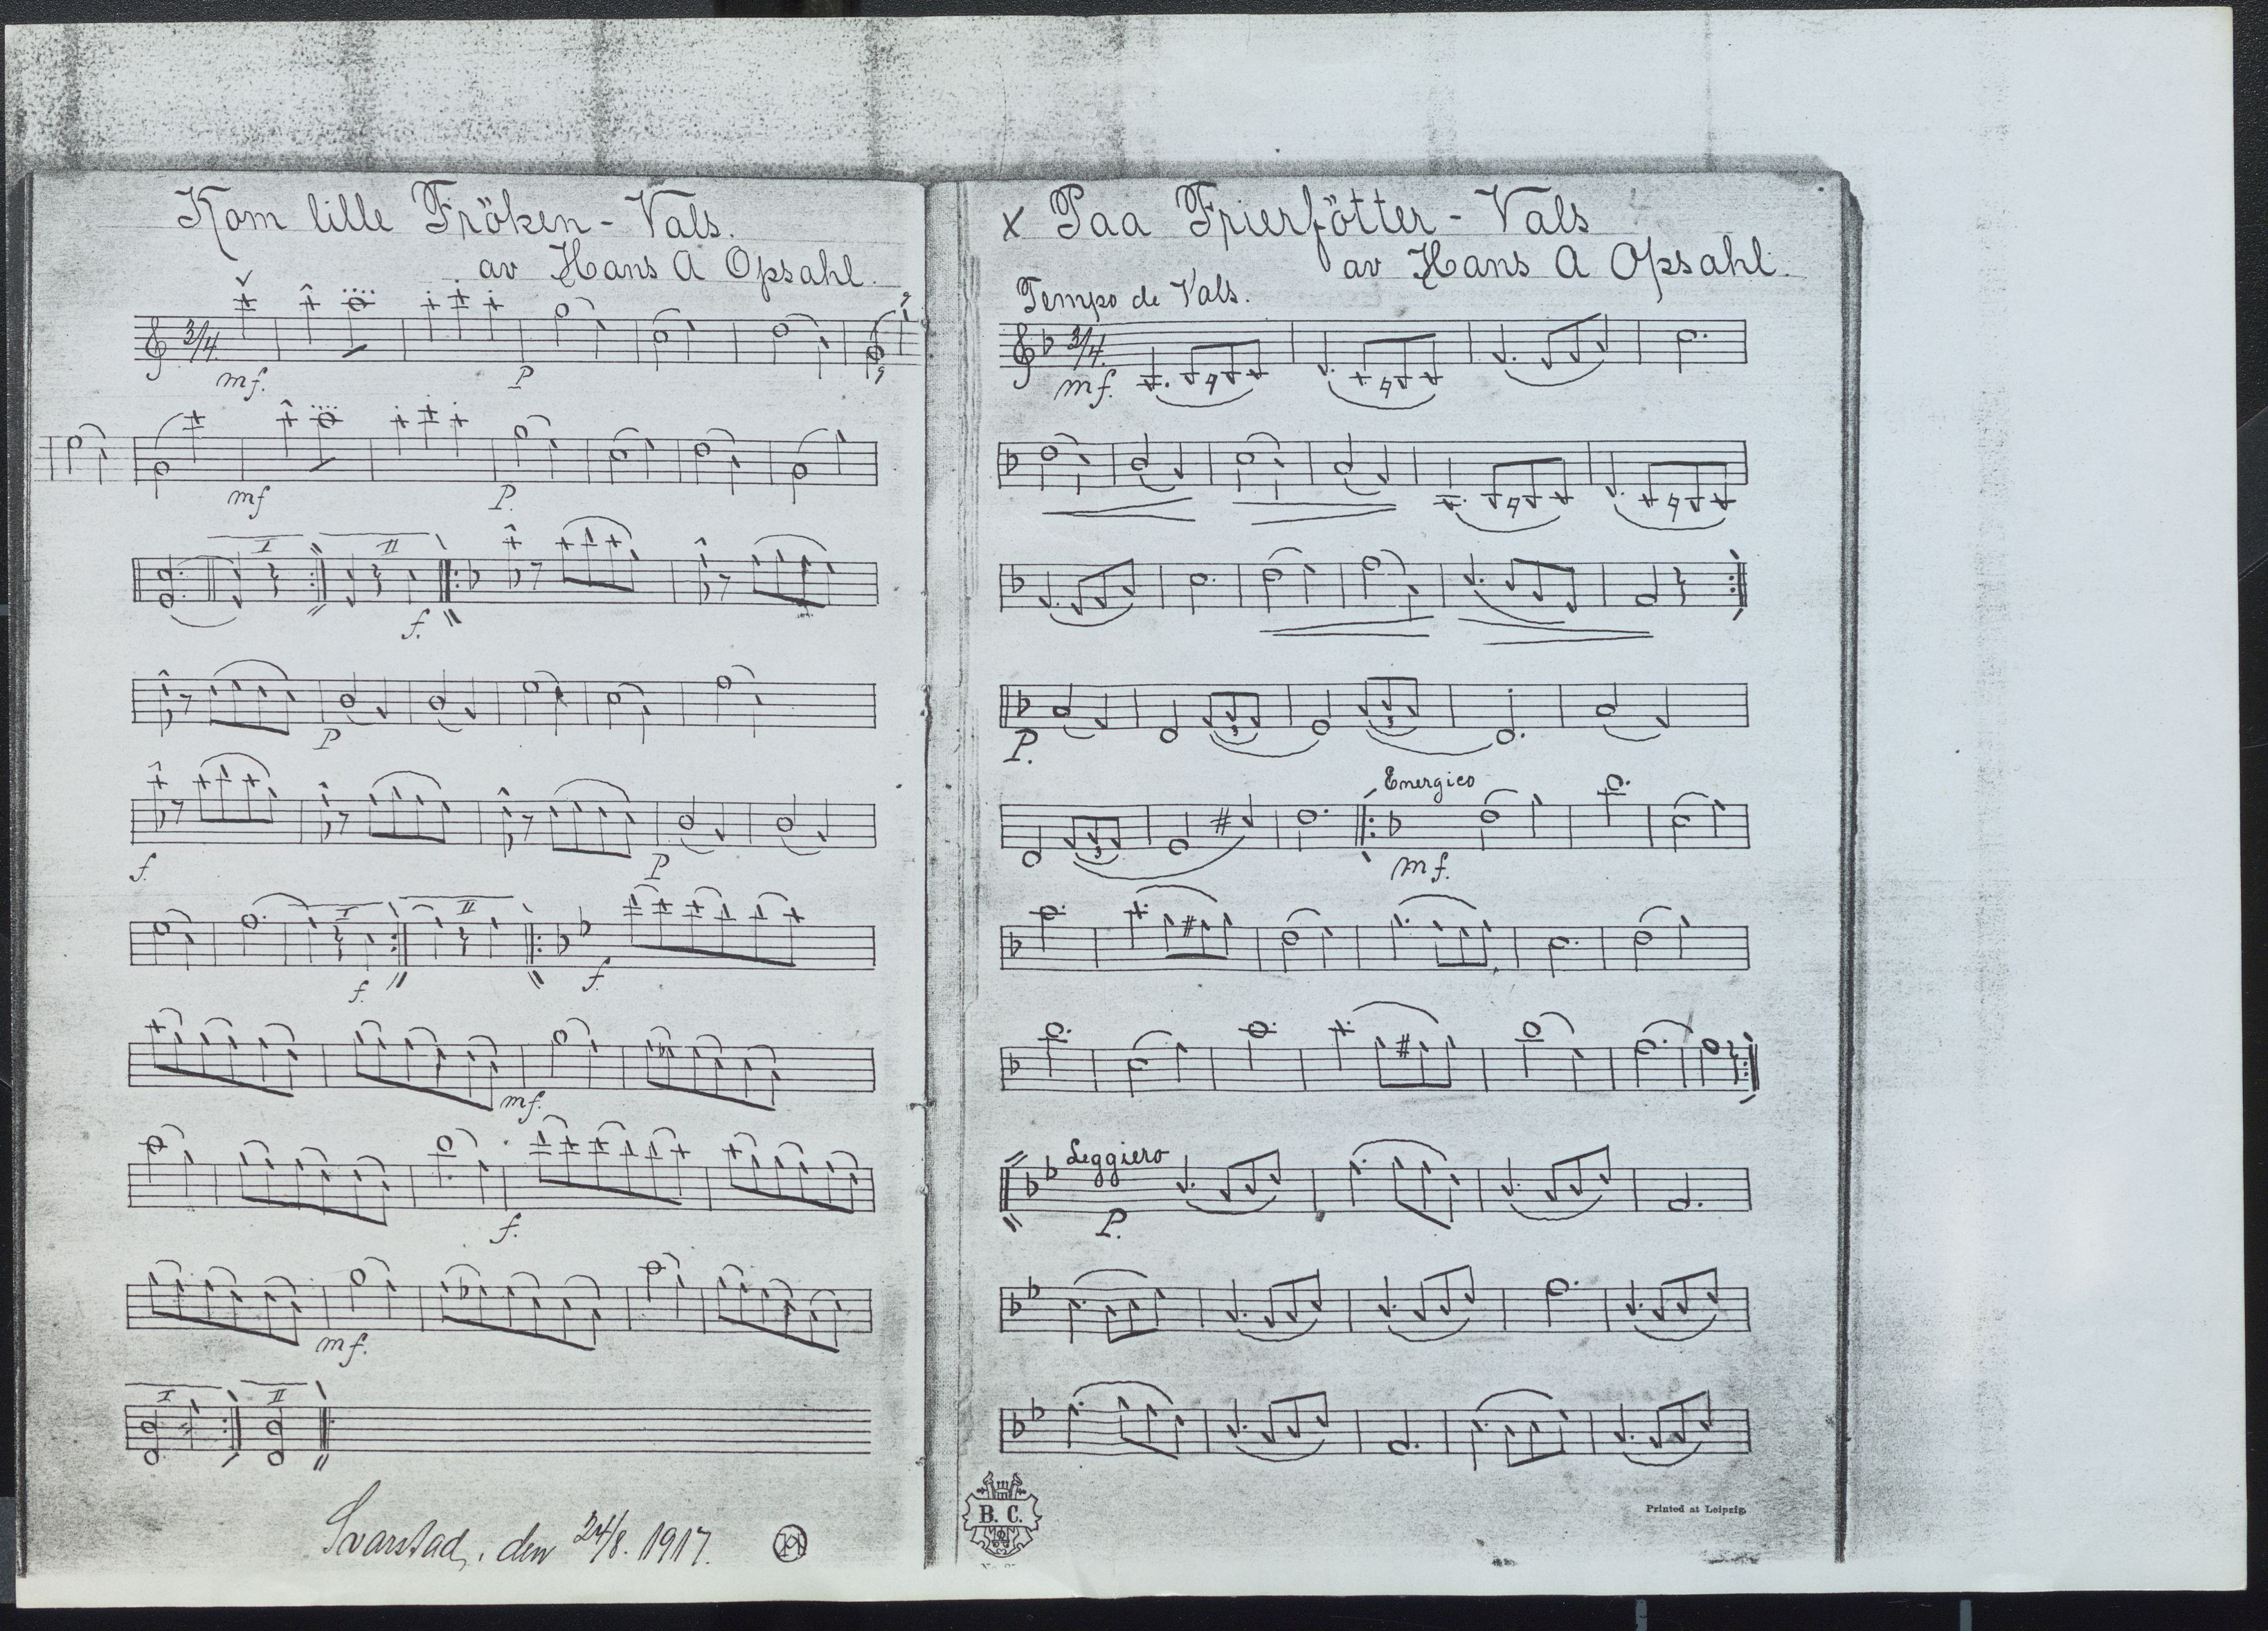 Kom lille Fröken - Vals.
av Hans A Opsahl.
3/4
mf. P
mf P.
I II
f.
P
f. P
I II
f. f.
mf.
f.
mf.
I II
Svarstad, den 24/8. 1917.
x Paa Frierfötter - Vals
av Hans A Opsahl.
Tempo de Vals.
3/4
mf.
P.
3 3
Energico
3
mf.
Leggiero
P.
B. C.
Printed at Leipzig.